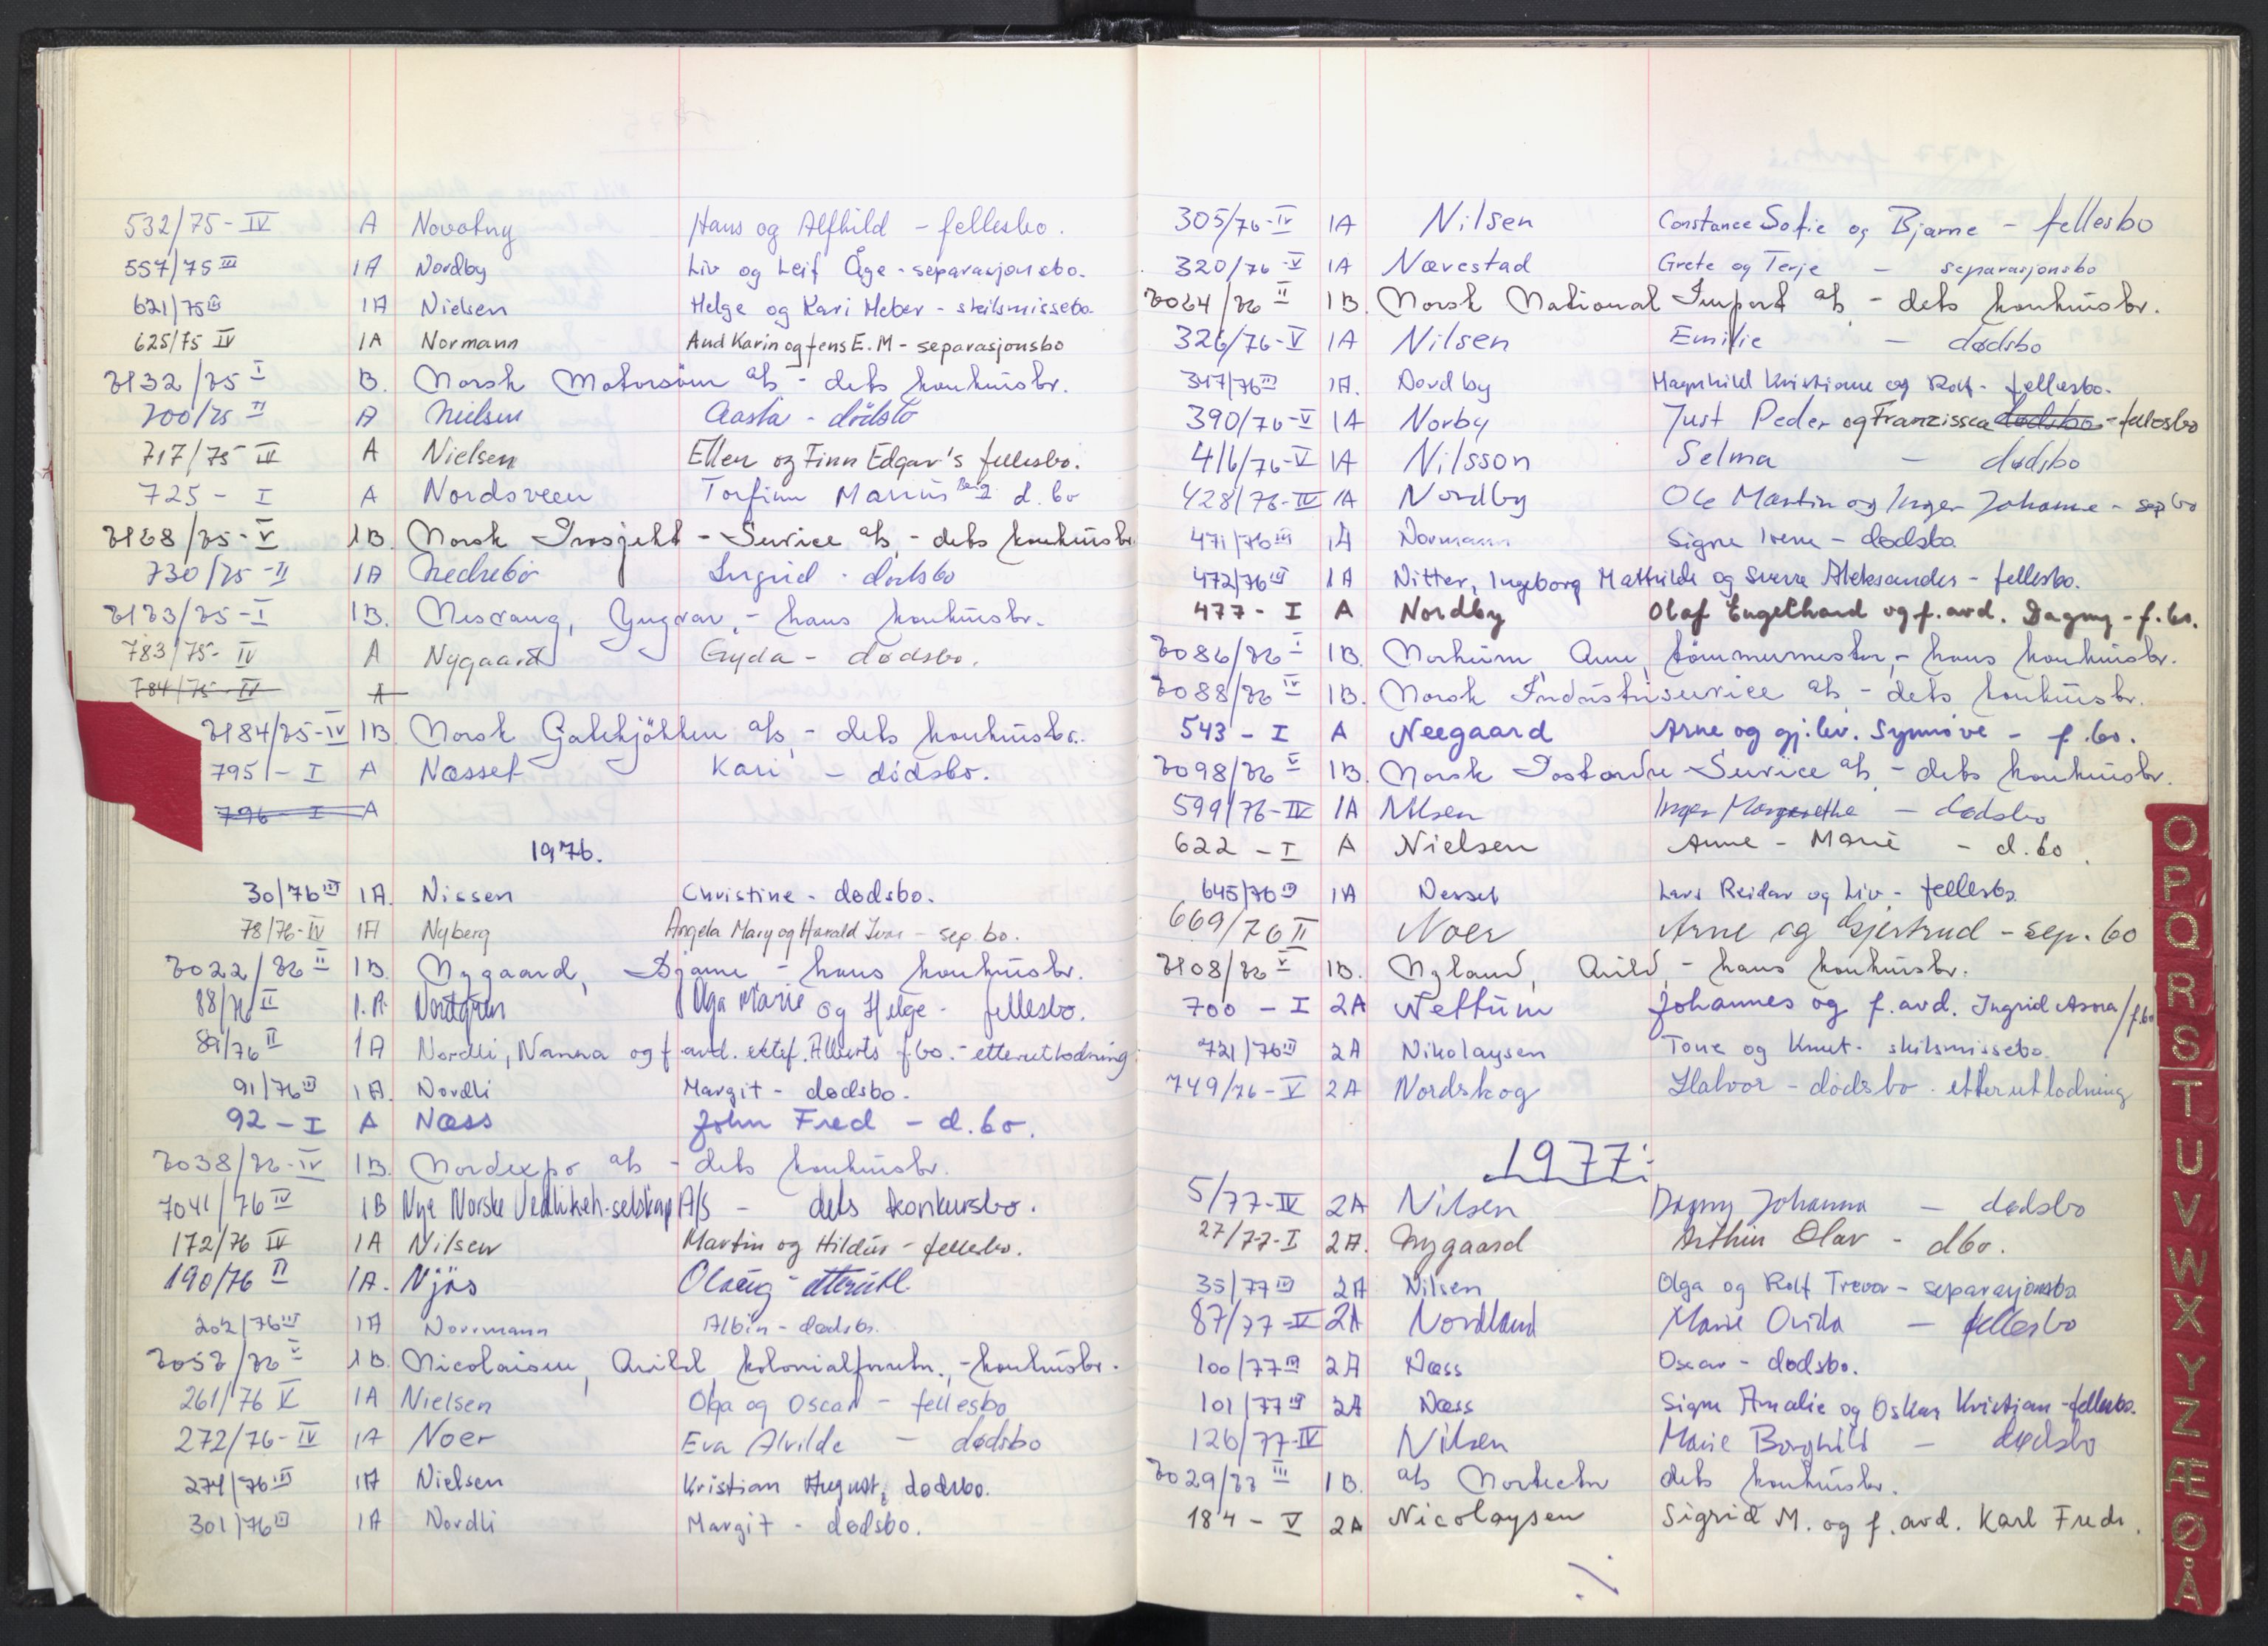 532/75-IV A Novotny Hans og Alfhild - fellesbo.
557/75 III 1A Nordby Liv og Leif Åge - separasjonsbo.
621/75 III 1A Nielsen Helge og Kari Meber - skilsmissebo.
625/75 IV 1A Normann Aud Karin og Jens E. M - separasjonsbo
7132/75 I B. Norsk Motorsöm a/s - dets konkursbo.
700/75 II A Nielsen Aasta - dödsbo
717/75 IV A Nielsen Ellen og Finn Edgar's fellesbo.
725 - I A Nordsveen Torfinn Marius Berg d.bo
7168/75-V 1B. Norsk Prosjekt - Service a/s, - dets konkursbo
730/75-II 1A Nedrebö Ingrid - dødsbo
7173/75-I 1B. Ingvar, - hans konkursbo.
783/75-IV A Nygaard Gyda - dødsbo.
784/75-IV A
7184/75-IV 1B. Norsk Gatekjökken a/s, - dets konkursbo.
795 - I A Næsset Kari - dødsbo.
796 - I A
1976.
30/76 III 1A. Nissen Christine - dødsbo.
78/76-IV 1A Nyberg Angela Mary og Harald Ivar - sep.bo.
7022/76 II 1B. Nygaard, Bjarne - hans konkursbo.
88/76 II 1.A. Nordgren Olga Marie og Helge - fellesbo.
89/76 II 1A Nordli, Nanna og f. avd. ektef. Alberts f.bo. - etterutlodning
91/76 III 1A. Nordli Margit - dødsbo.
92 - I A Næss John Fred - d.bo.
7038/76-IV 1B. Nordexpo a/s - dets konkursbo.
7041/76 IV 1B Nye Norske Vedlikeh.-selskap A/S - dets konkursbo.
172/76 IV 1A Nilsen Martin og Hildur - fellesbo.
190/76 II 1A. Njøs Olaug - etterutl
202/76 III 1A Norrmann Albin - dødsbo.
7057/76 V 1B. Nicolaisen, Arild, kolonialforretn., - konkursbo.
261/76 V 1A Nielsen Olga og Oscar - fellesbo
272/76-IV 1A Noer Eva Alvilde - dødsbo
274/76 III 1A Nielsen Kristian August, dødsbo.
301/76 III 1A Nordli Margit - dødsbo.
305/76-IV 1A Nilsen Constance Sofie og Bjarne - fellesbo
320/76-V 1A Nævestad Grete og Terje - separasjonsbo
7064/76 II 1B. Norsk National Import a/s, - dets konkursbo.
326/76-V 1A Nilsen Emilie - dødsbo
347/76 III 1A. Nordby Magnhild Kristiane og Rolf - fellesbo.
390/76-V 1A Norby Just Peder og Franzissca dødsbo - fellesbo
416/76-V 1A Nilsson Selma - dødsbo
428/76-IV 1A Nordby Ole Martin og Inger Johanne - sep bo
471/76 III 1A Normann Signe Irene - dødsbo
472/76 III 1A Nitter, Ingeborg Mathilde og Sverre Aleksander - fellesbo.
477 - I A Nordby Olaf Engelhard og f. avd. Dagny - f.bo.
7086/76 I 1B. Arne, tömmermester, - hans konkursbo.
7088/76 IV 1B. Norsk Industriservice a/s - dets konkursbo.
543 - I A Neegaard Arne og gj.lev. Synnöve - f.bo.
7098/76 V 1B. Norsk Postordre-Service a/s, - dets konkursbo.
599/76-IV 1A Nilsen Inger Margrethe - dødsbo
622 - I A Nielsen Anne - Marie - d.bo.
645/76 III 1A Nesset Lars Reidar og Liv - fellesbo.
669/76 II Noer Arne og Gjertrud - sep.bo
7108/76 V 1B. Nyland, Arild, - hans konkursbo.
700 - I 2A Nettum Johannes og f. avd. Ingrid Asora/f.bo
721/76 III 2A Nikolaysen Tone og Knut - skilsmissebo.
749/76-V 2A Nordskog Halvor - dødsbo - etterutlodning
1977:
5/77-IV 2A Nilsen Dagny Johanna - dødsbo
27/77-I 2A. Nygaard Arthur Olav - dbo.
35/77 III 2A Nilsen Olga og Rolf Trevor - separasjonsbo
87/77-V 2A Nordland Marie Ovida - fellesbo
100/77 III 2A Næss Oscar - dødsbo.
101/77 III 2A Næss Signe Amalie og Oskar Kristian - fellesbo.
126/77-IV Nilsen Marie Borghild - dødsbo
7029/77 III 1B. a/s dets konkursbo.
184 - V 2A Nicolaysen Sigrid M. og f. avd. Karl Fredr.
O
P
Q
R
S
T
U
V
W
X
Y
Z
Æ
Ø
Å